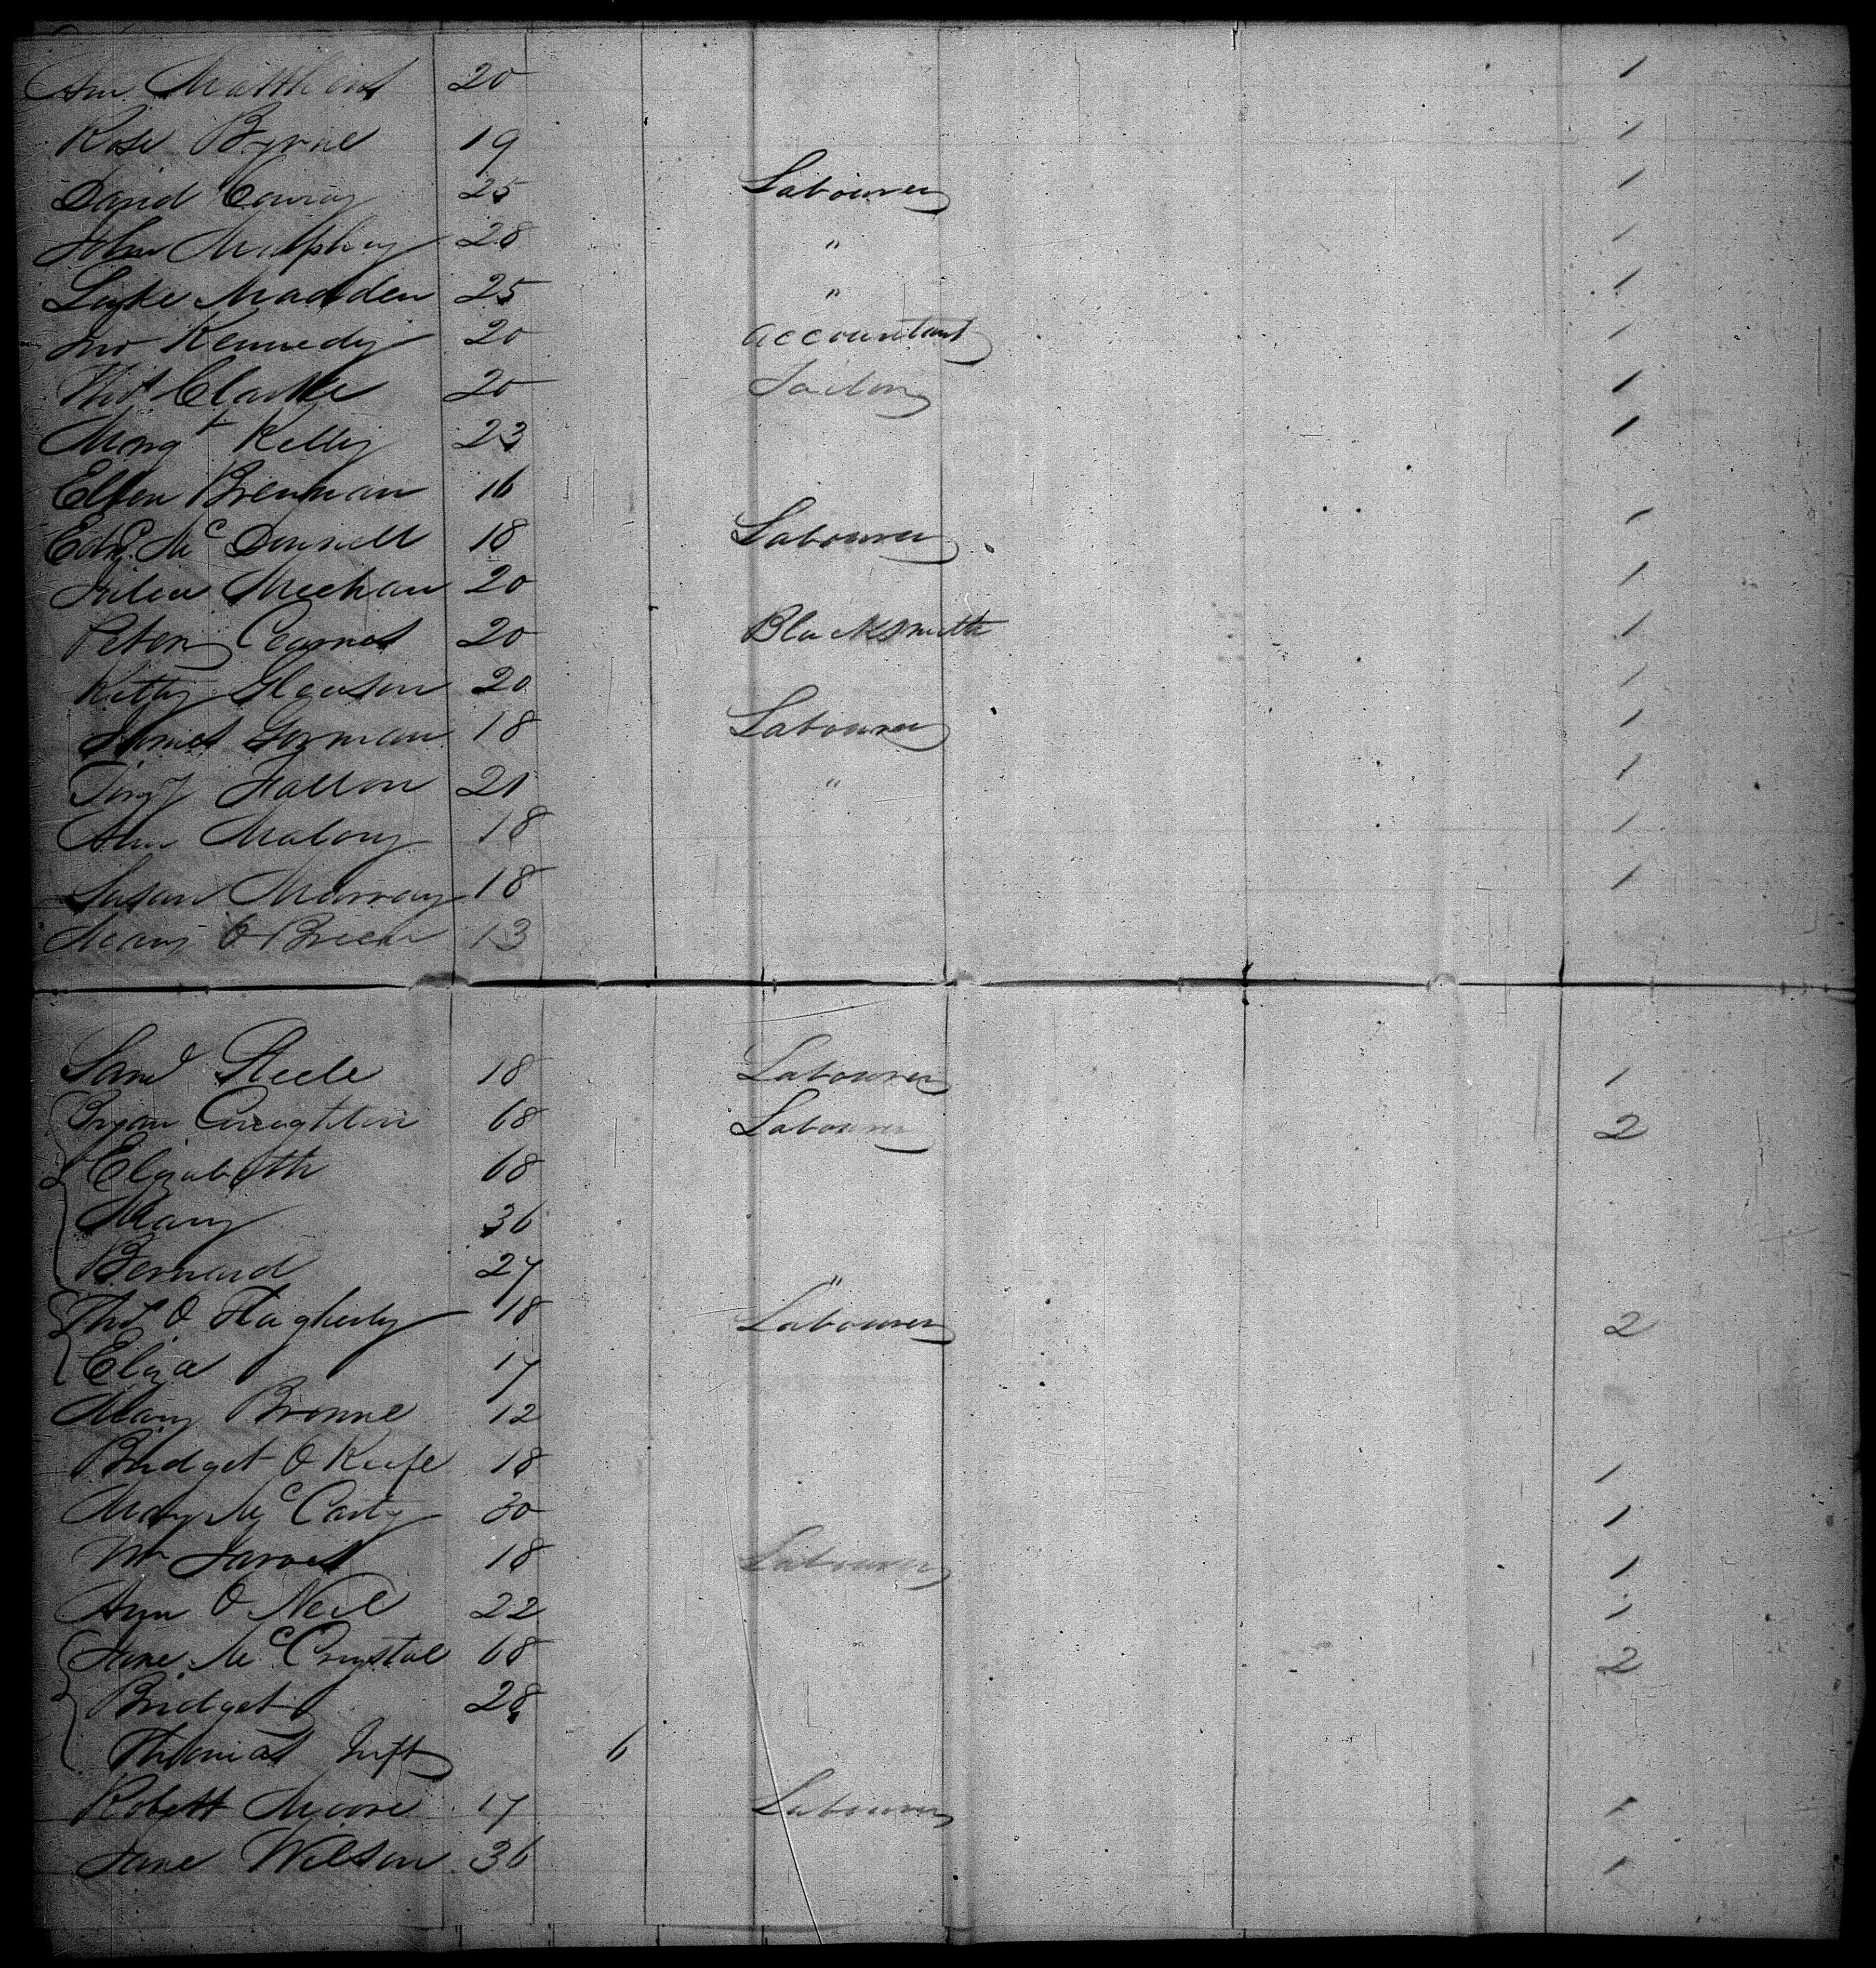 Ann Matthews 20 1
Rose Byrne 19 1
David Conroy 25 Labourer 1
John Murphy 28 " 1
Luke Madden 25 " 1
Jno Kennedy 20 accountant 1
Thos Clarke 20 Tailor 1
Margt Kelly 23 1
Ellen Brennan 16
Edwd McDonnell 18 Labourer 1
Meehan 20 1
Peter 20 Blacksmith 1
Kitty Gleason 20 1
James Gorman 18 Labourer 1
Timy Fallon 21 " 1
Ann Malony 18 1
Susan Murray 18 1
Mary O Brien 13
Saml Steele 18 Labourer 1
Bryan Creaghton 68 Labourer 2
Elizabeth 68
Mary 36
Bernard 27 "
Thos O Flagherty 18 Labourer 2
Eliza 17
Mary Bronne 12
Bridget O Keefe 18 1
Mary McCarty 30 1
Wm James 18 Labourer 1
Ann O Neil 22 1
Jane McCrystal 68 2
Bridget 28
Thomas Inft 6
Robert Moore 17 Labourer 1
Jane Wilson 36 1